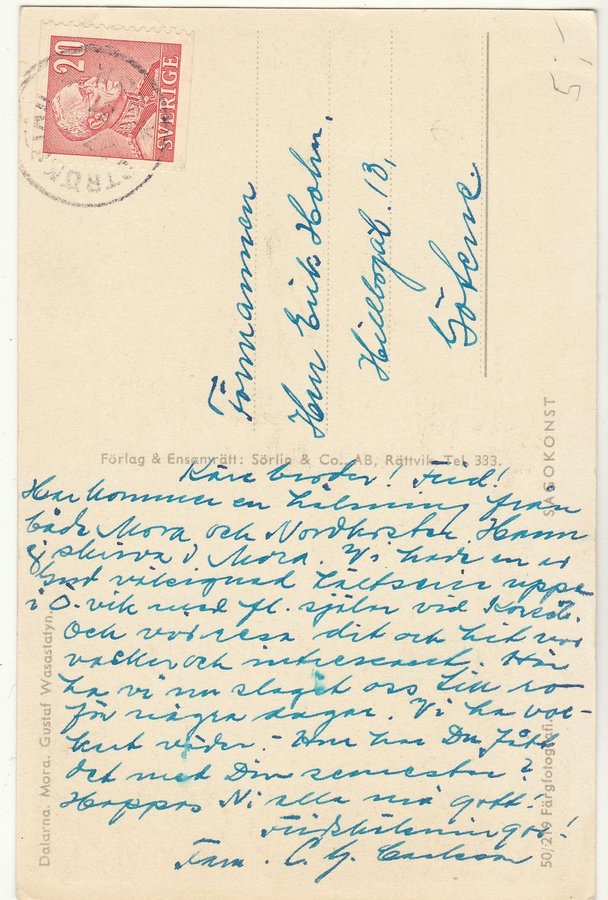 20
SVERIGE
5,-
Förmannen
Herr Erik Holm,
Hillbogat. 13,
Götene.
SAGOKONST
Förlag & Ensamrätt: Sörlin & Co., AB, Rättvik. Tel. 333.
Käre broder! Frid!
Här kommer en hälsning från
både Mora och Hann
ej skriva i Mora. Vi hade en av
Gud välsignad uppe
i Ö-vik med fl. själar vid Korset.
Och vår resa dit och hit var
vacker och intressant. Här
ha vi nu slagit oss till ro
för några dagar. Vi ha vac-
kert väder. - Hur har Du
det med Din semester?
Hoppas Ni alla må gott.
Fridshälsningar!
Fam. C. G. Carlsson
Dalarna. Mora. Gustaf Wasastatyn.
50/219 Färgfotografi.